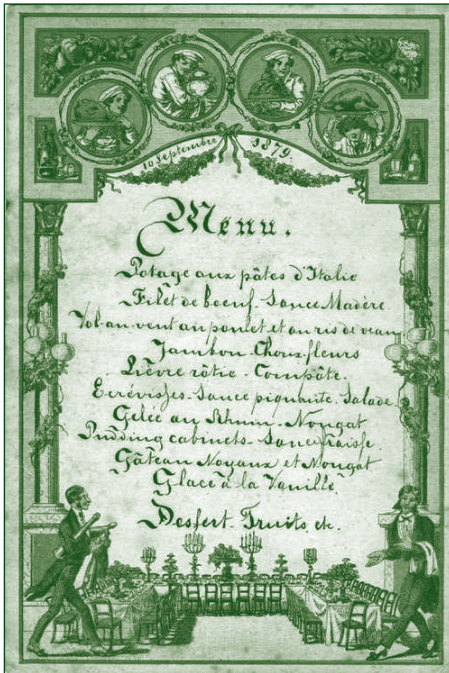 10 Septembre 1879.
Menu.
Potage aux pâtes d'Italie
Filêt de boeuf-Sauce Madère
Vol-au-vent au poulet et au ris de veau
Jambon-Choux-fleurs
Lièvre râtie-Compôte.
Ecrévisses-Sauce piquante. Salade
Gelée au Rhum-Nougat
Pudding cabinets-Sauce
Gâteau Noyaux et Nougat
Glace à la Vanille
Dessert Fruits, etc.